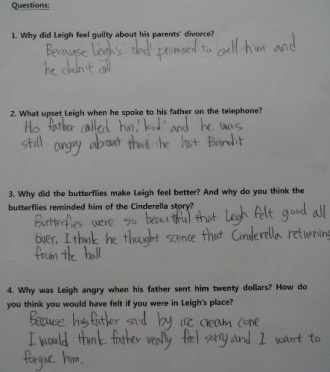 Questions:
1. Why did Leigh feel guilty about his parents' divorce?
Because Leigh's dad promised to call him and
he didn't call
2. What upset Leigh when he spoke to his father on the telephone?
His father called him 'kid' and he was
still angry about that he lost Bandit
3. Why did the butterflies make Leigh feel better? And why do you think the
butterflies reminded him of the Cinderella story?
Butterflies were so beautiful that Leigh felt good all
over. I think he thought scence that Cinderella returning
from the ball
4. Why was Leigh angry when his father sent him twenty dollars? How do
you think you would have felt if you were in Leigh's place?
Because his father said by ice cream cone
I would think father really feel sorry and I want to
forgive him.